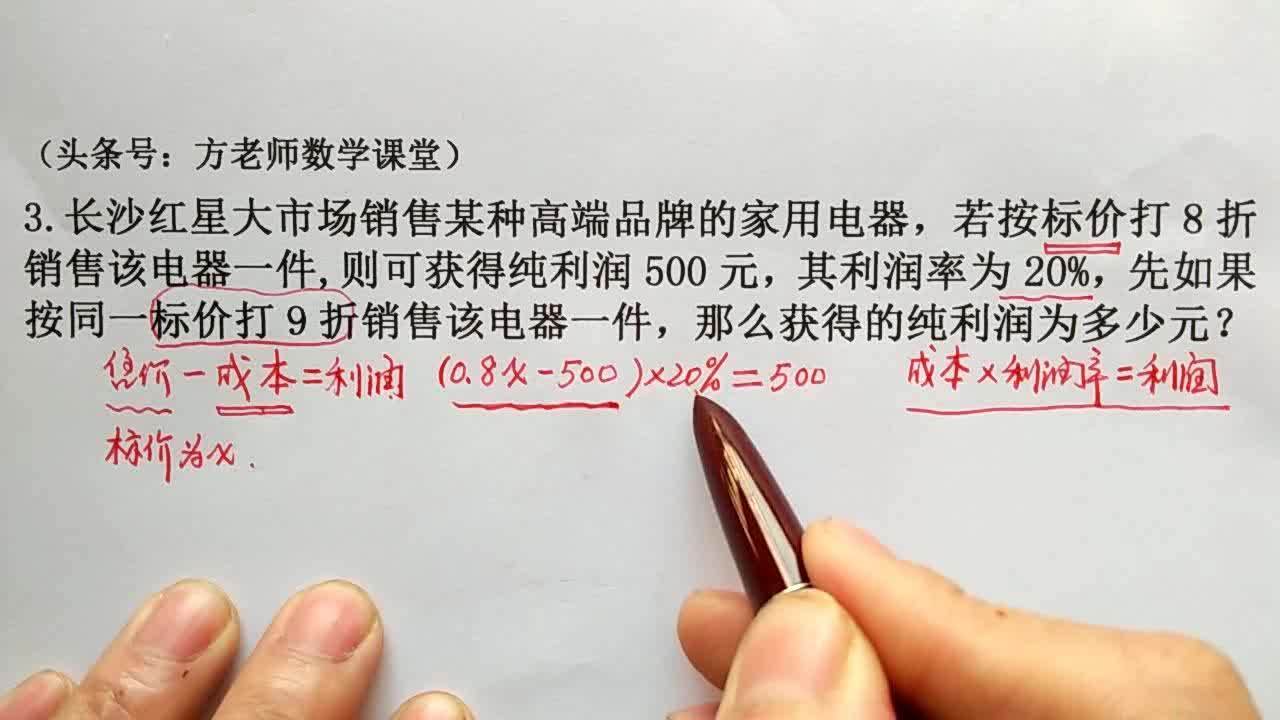 （头条号：方老师数学课堂）
3.长沙红星大市场销售某种高端品牌的家用电器，若按标价打 8 折
销售该电器一件,则可获得纯利润 500 元，其利润率为 20%，先如果
按同一标价打 9 折销售该电器一件，那么获得的纯利润为多少元？
售价－成本=利润 (0.8x－500)×20%=500 成本×利润率=利润
标价为x.